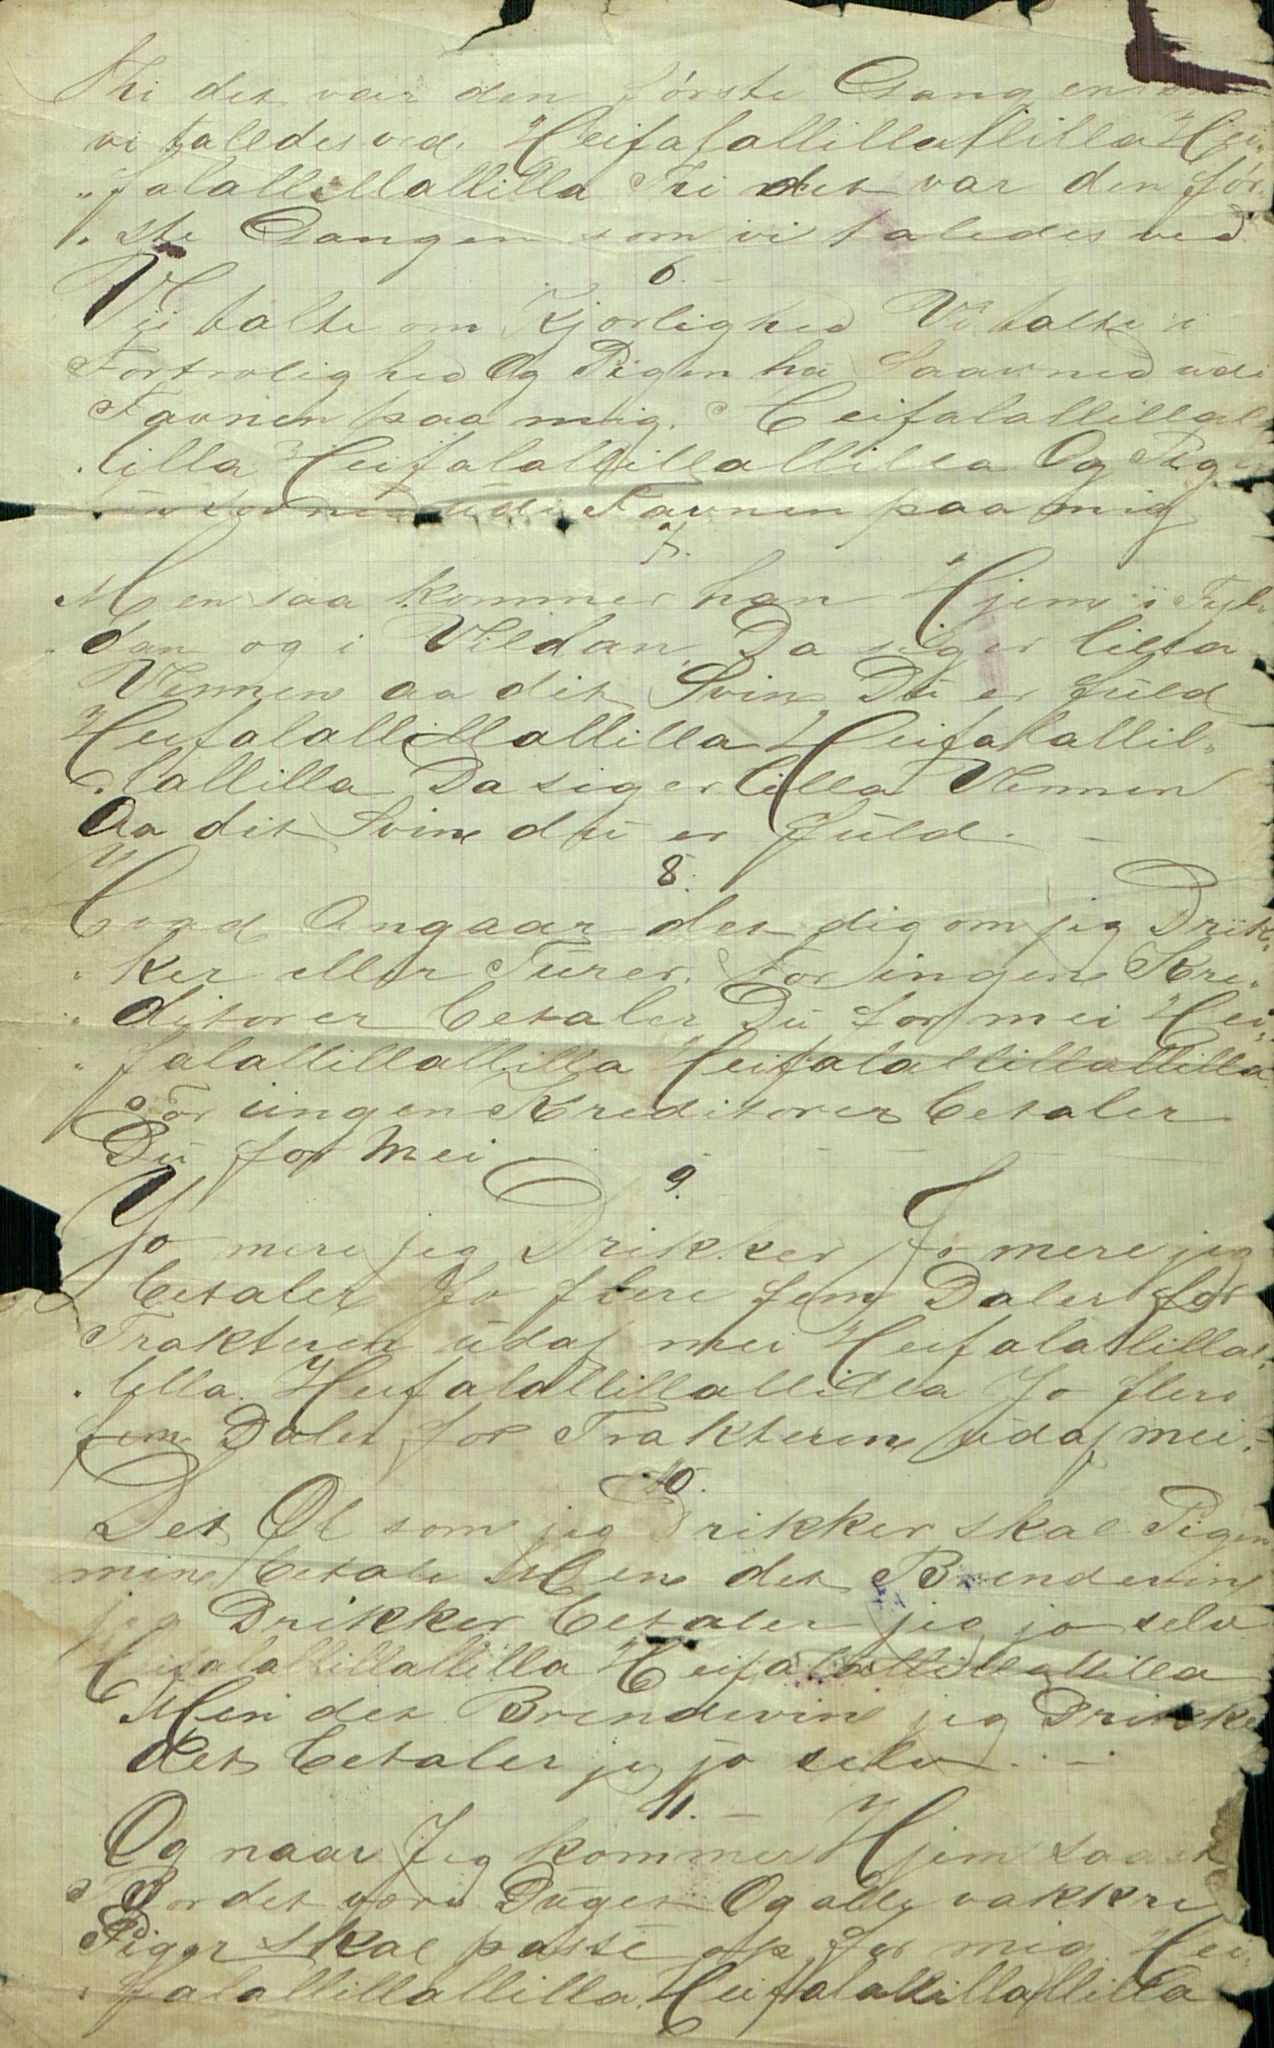 Thi det var den förste Gangen
vi talledes ved. Heifalallillallilla Hei„
„falallillallilla Thi det var den för„
„ste Gangen som vi taledes ved
6.
Vi talte om Kjörlighed Vi talte i
Fortrolighed Og Pigen hü Saavned üdi
Favnen paa mig. Heifalallillal
„lilla Heifalallillallilla Og Pigen
hü sovned üdi Favnen paa mig
7.
Men saa kommer han Hjem i Fyl„
„dan og i Vildan Da siger lilla
Vennen aa dit Svin Dü er füld
Heifalallillallilla Heifalallil„
„lallilla Da siger lilla Vennen
Aa dit Svin dü er füld. —
8.
Hvad Angaar det dig om jeg Drik„
„ker eller Türer. For ingen Kre„
„ditorer betaler Dü for mei Hei„
„falallillallilla Heifalallillallilla
For iingen Kreditorer betaler
Dü for mei
9.
Jo mere jeg Drikker Jo mere jeg
betaler Jo flere fem Daler for
Trakteren üdaf mei Heifalallillal„
„lilla. Heifalallillallilla Jo flere
fem Daler for Trakteren üdaf mei.
10.
Det Øl som jeg Drikker skal Pigen
min betale Men det Brendevin
jeg Drikker betaler jeg jo selv
Heifalallillallilla Heifalallillallilla
Men det Brendevin jeg Drikker
det betaler jeg jo selv. —
11. —
Og naar Jeg kommer Hjem saa
Bordet være Düget Og alle vakkre
Piger skal passe op for mig Hei„
„falallillallilla Heifalallillallilla